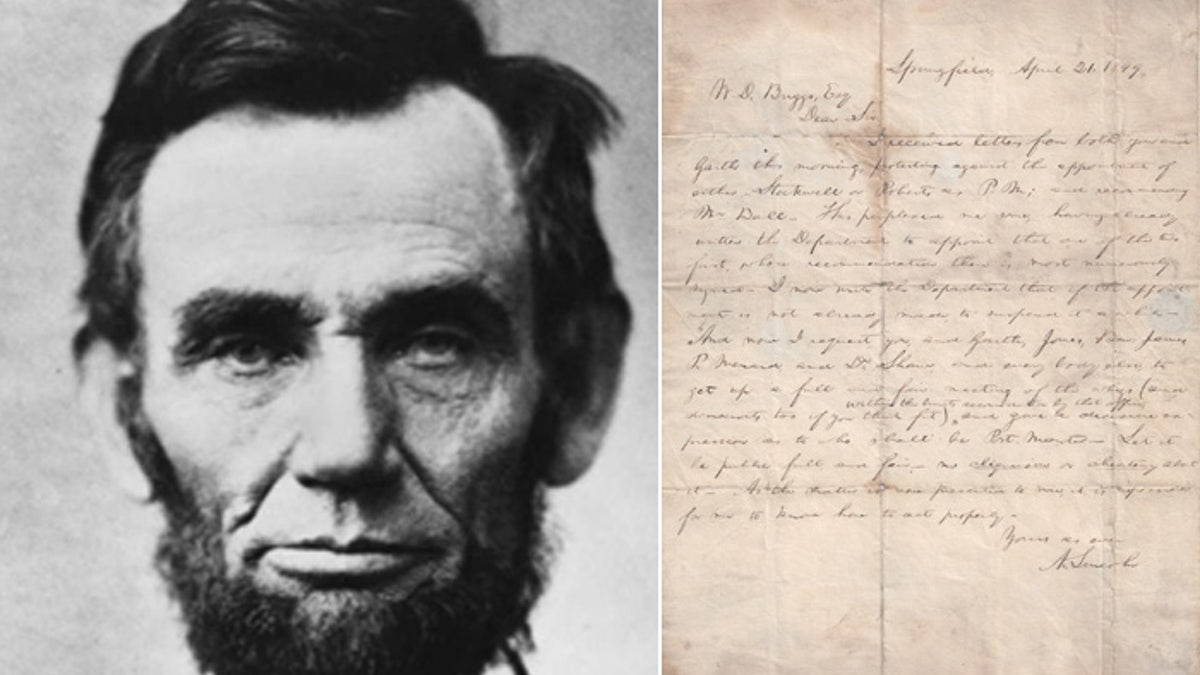 Springfield, April 21. 1849.
W. D. Briggs, Esq
Dear Sir.
I received letters from both you and
this morning, protesting against the appointment of
either Stockwell or Roberts as P. M; and recommending
Mr Ball. This perplexes me some, having already
written the Department to appoint that one of the two
first, whose recommendation there is most numerously
signed. I now write the Department that if the appoint
ment is not already made, to suspend it a while.
And now I request you and James
P. Menard and Dr. Shaw and every body else to
get up a full and fair meeting of the whigs (and
within the limits by that office
democrats too if you think fit), and give a decisive ex-
pression as to who shall be Post. Master. Let it
be public full and fair no or cheating about
it. As the matter is now presented to me it is impossible
for me to know how to act properly.
Yours as ever
A. Lincoln